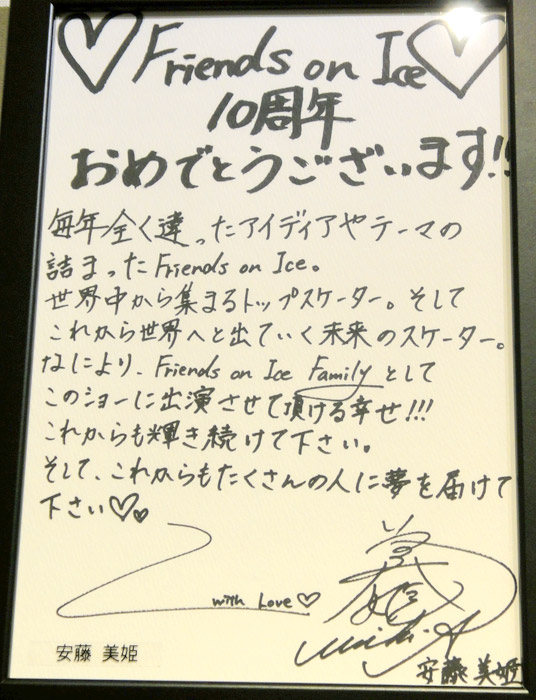 ♡Friends on Ice♡
10周年
おめでとうございます!!
毎年全く違ったアイディアやテーマの
詰まったFriends on Ice。
世界中から集まるトップスケーター。そして
これから世界へと出ていく未来のスケーター。
なにより、Friends on Ice Familyとして
このショーに出演させて頂ける幸せ!!!
これからも輝き続けて下さい。
そして、これからもたくさんの人に夢を届けて
下さい♡♡
with Love♡
安藤 美姫
安藤美姫